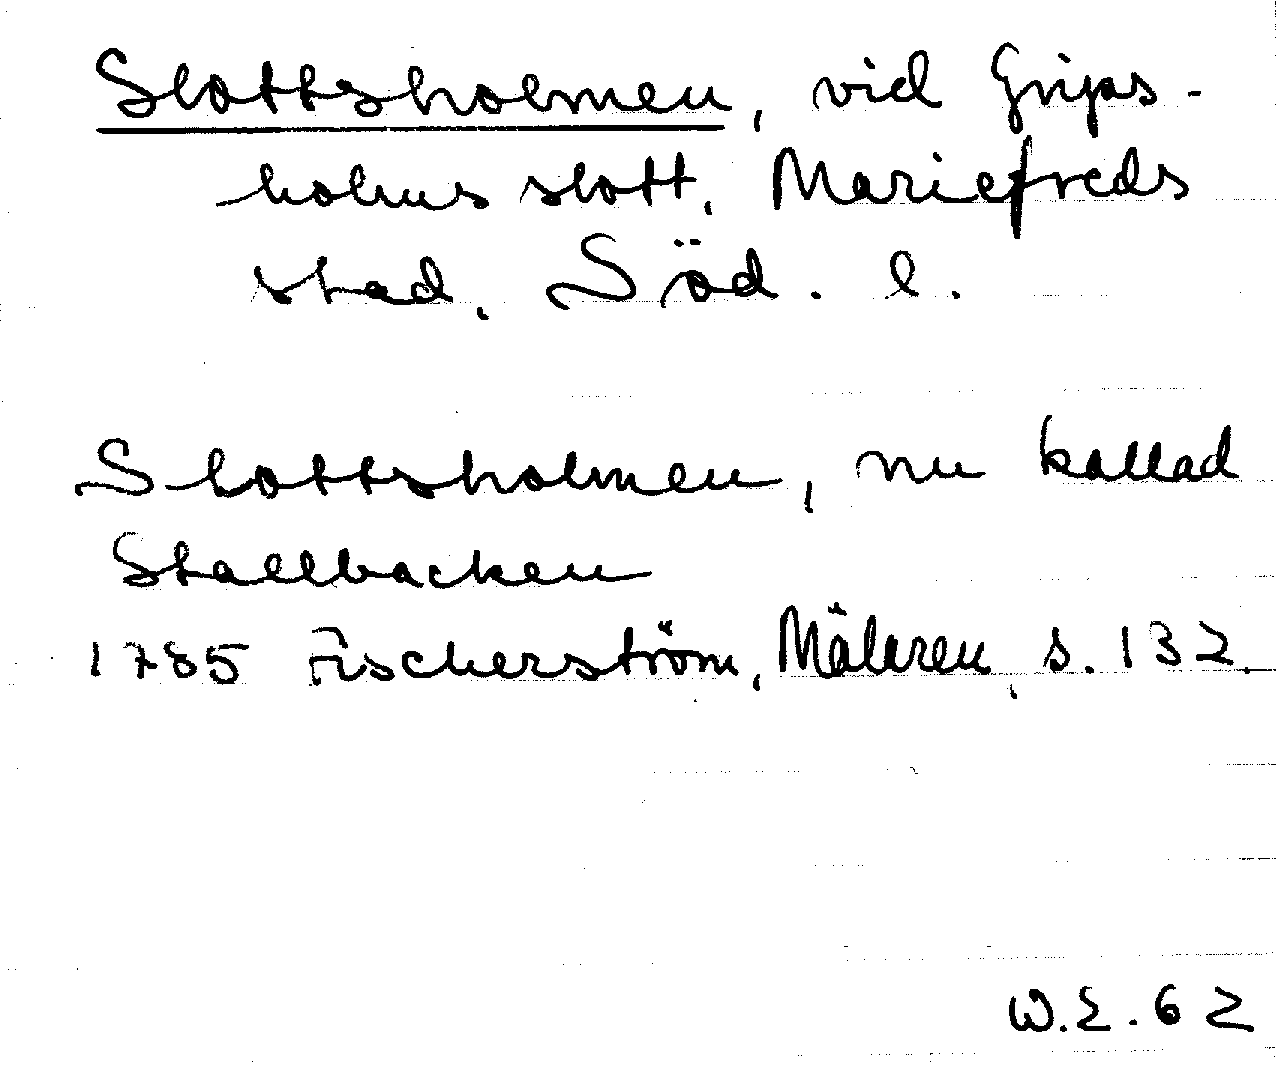 Slottsholmen, vid Grips-
holms slott, Mariefreds
stad, Söd. l.
Slottsholmen, nu kallad
Stallbacken
1785 Fischerström, Mälaren, s. 132.
W.E. 62